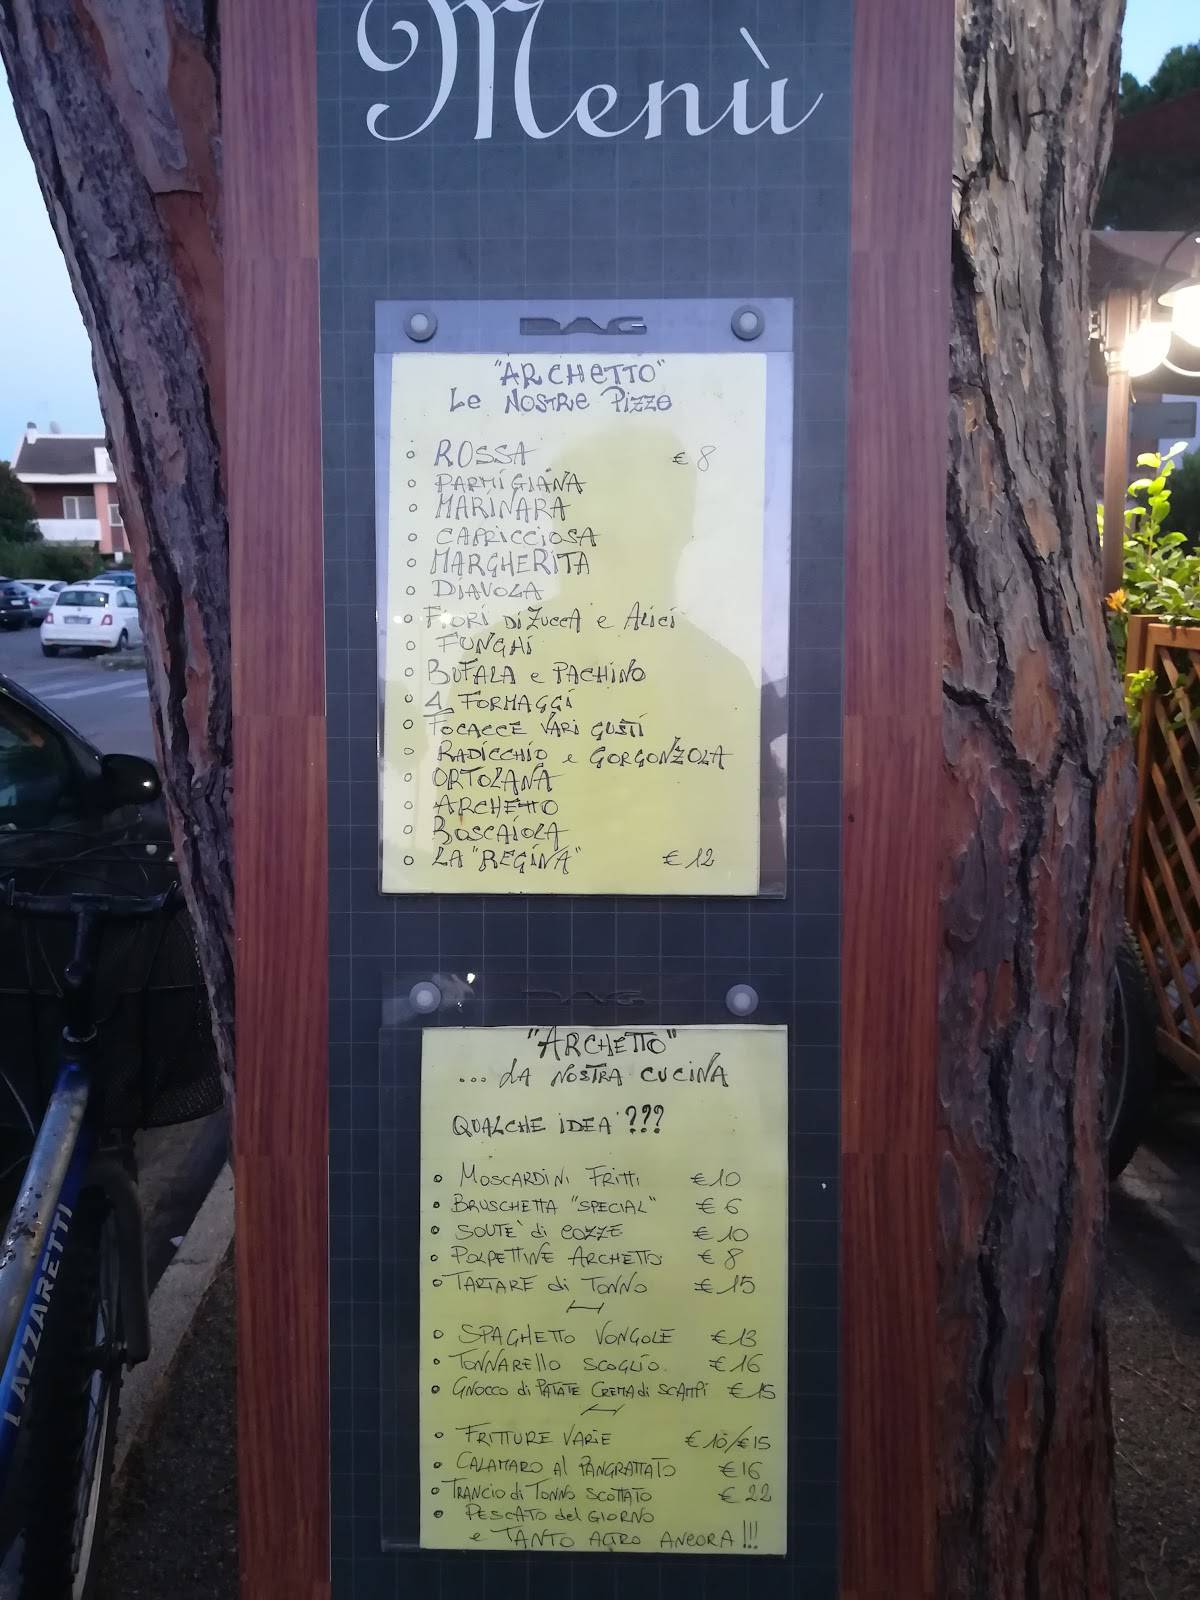 Menù
DAG
"ARCHETTO"
Le NOSTRE PIZZE
ROSSA € 8
PARMIGIANA
MARINARA
CAPRICCIOSA
MARGHERITA
DIAVOLA
FIORI DI ZUCCA e ALICI
FUNGHI
BUFALA e PACHINO
4 FORMAGGI
FOCACCE VARI GUSTI
RADICCHIO e GORGONZOLA
ORTOLANA
ARCHETTO
BOSCAIOLA
LA "REGINA" € 12
DAG
"ARCHETTO"
... LA NOSTRA CUCINA
QUALCHE IDEA ???
MOSCARDINI FRITTI € 10
BRUSCHETTA "SPECIAL" € 6
SOUTE' di COZZE € 10
POLPETTINE ARCHETTO € 8
TARTARE di TONNO € 15
SPAGHETTO VONGOLE € 13
TONNARELLO SCOGLIO € 16
GNOCCO di PATATE CREMA di SCAMPI € 15
FRITTURE VARIE € 10/€ 15
CALAMARO AL PANGRATTATO € 16
TRANCIO di TONNO SCOTTATO € 22
PESCATO del GIORNO
e TANTO ALTRO ANCORA!!!
LAZZARETTI